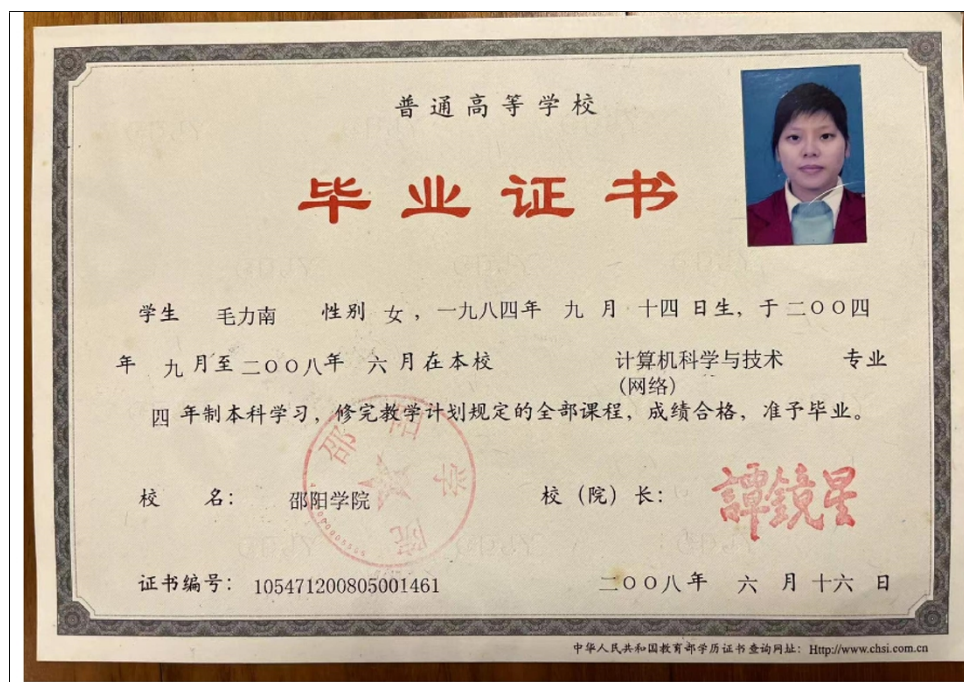 普通高等学校
毕业证书
学生 毛力南 性别 女，一九八四年 九 月 十四 日生，于 二〇〇四
年 九 月至 二〇〇八年 六 月在本校 计算机科学与技术 专业
(网络)
四 年制本科学习，修完教学计划规定的全部课程，成绩合格，准予毕业。
邵阳学院
校 名： 邵阳学院 校（院）长： 譚鏡星
证书编号： 105471200805001461 二〇〇八年 六 月 十六 日
中华人民共和国教育部学历证书查询网址：Http://www.chsi.com.cn